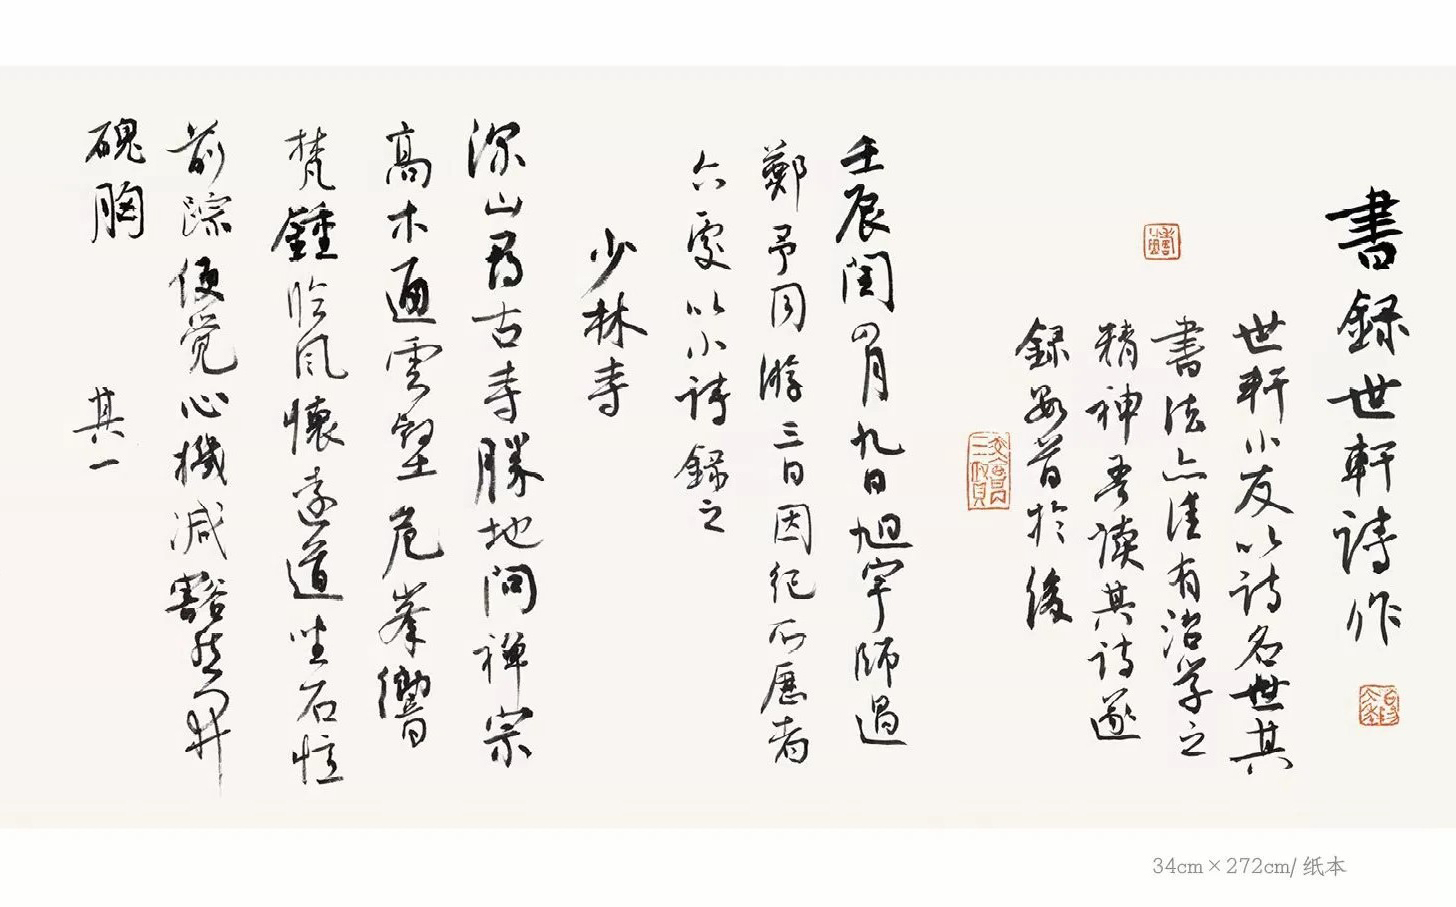 書録世軒詩作
世軒小友以詩名世其
書法亦佳有治学之
精神吾读其詩遂
録数首於後
壬辰閏四月九日旭宇師過
鄭予同游三日因纪所歷者
六處以小詩録之
少林寺
深山尋古寺勝地问禅宗
高木通雲壑危峯響
梵鍾临风懷遠道坐石忆
前踪便觉心機减豁然
磈胸 其一
34cm×272cm/纸本